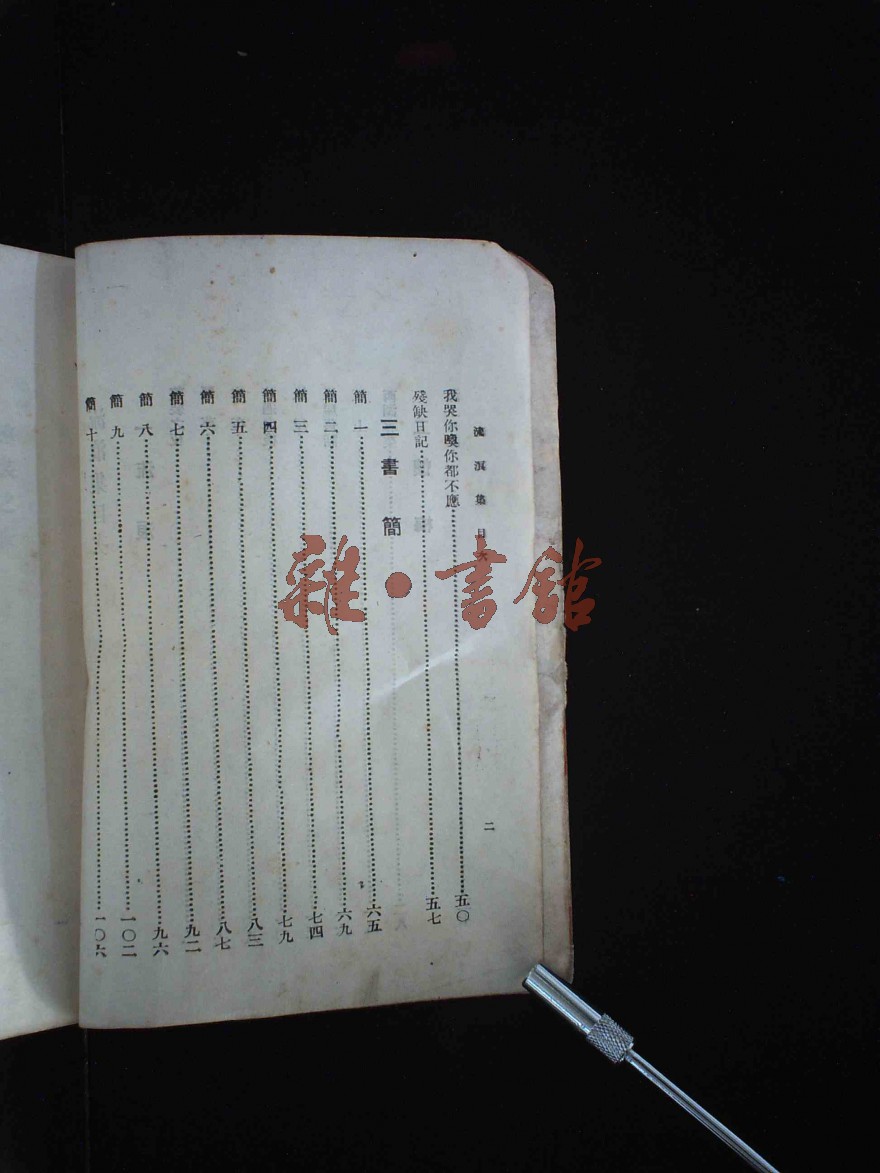 流浪集 目次
二
我哭你喚你都不應……五〇
殘缺日記……五七
三 書 簡
簡 一……六五
簡 二……六九
簡 三……七四
簡 四……七九
簡 五……八三
簡 六……八七
簡 七……九二
簡 八……九六
簡 九……一〇二
簡 十……一〇六
雜·書館